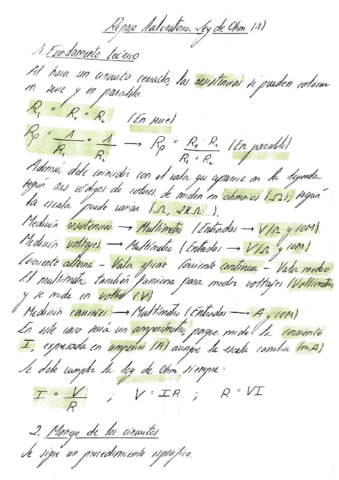 Repaso Laboratorio. Ley de Ohm (A)
1. Fundamento teórico
Al hacer un circuito cerrado, las resistencias se pueden colocar
en serie y en paralelo.
R = R₁ + R₂ (En serie)
Rp = 1/R₁ + 1/R₂ → Rp = R₁ · R₂ / R₁ + R₂ (En paralelo)
Además, debe coincidir con el valor que aparece en la leyenda
según sus códigos de colores se miden en ohmios (Ω), según
la escala puede variar (Ω, 2KΩ...).
Medición resistencias → Multímetro (Entradas → V/Ω y COM)
Medición voltajes → Multímetro (Entradas → V/Ω y COM)
Corriente alterna - Valor eficaz Corriente continua - Valor medio
El multímetro también funciona para medir voltajes (Voltímetro)
y se mide en voltios (V)
Medición corrientes → Multímetro (Entradas → A y COM)
En este caso será un amperímetro porque mide la corriente
I, expresada en amperios (A) aunque la escala cambia (mA)
Se debe cumplir la ley de Ohm siempre:
I = V/R ; V = IR ; R = VI
2. Manejo de los circuitos
Se sigue un procedimiento específico.